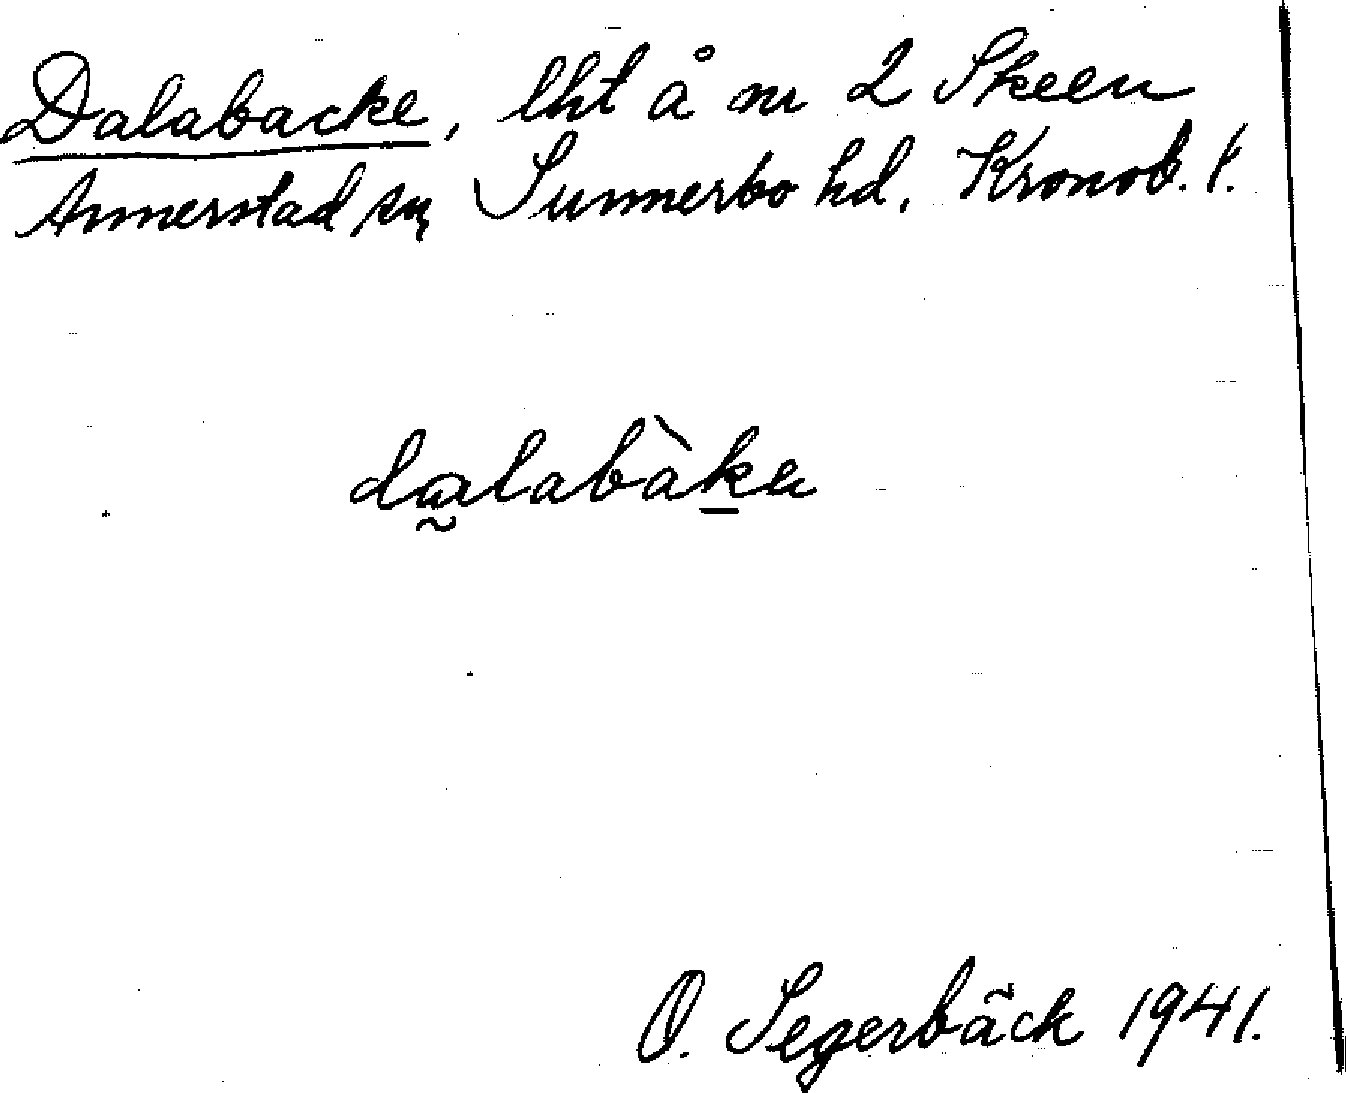 Dalabacke, lht å nr 2 Skeen
Annerstad sn, Sunnerbo hd. Kronob. l.
dalabàka
O. Segerbäck 1941.